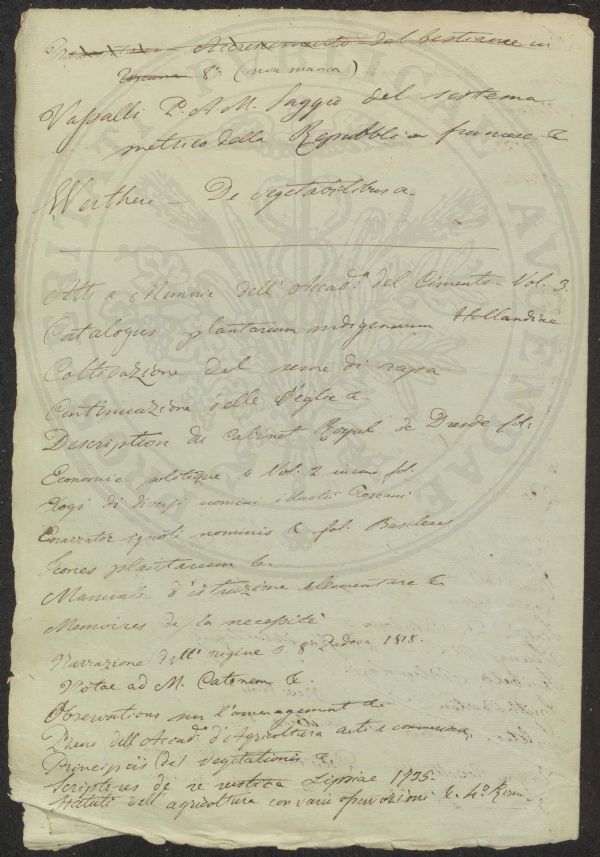 Accrescimento del bestiame in
Toscana 8° (non manca)
Vassalli P. A. M. Saggio del sistema
metrico della Repubblica francese &
De vegetabilibus &
Atti e Memorie dell' Accad.a del Cimento Vol. 3.
Catalogus plantarum indigenarum Hollandiae
Coltivazione del seme di rapa
Continuazione delle Veglie &
Description du Cabinet Royal de Dresde fol.
Economie politique Vol. 2 fol.
Elogi di diversi uomini illustri Toscani
Enarrator ignoti nominis & fol. Basileae
Icones plantarum &.
Manuale d'istruzione elementare &
Memoires de la necessité
Narrazione dell' origine & 8° Padova 1818.
Notae ad M. Catonem &.
Observations sur l'amenagement &
dell' Accad. d'Agricoltura arti e commercio
Principois del vegetationis &.
Scriptores de re rustica Lipsiae 1735
Statuti dell' agricoltura con varie osservazioni & 4° Roma